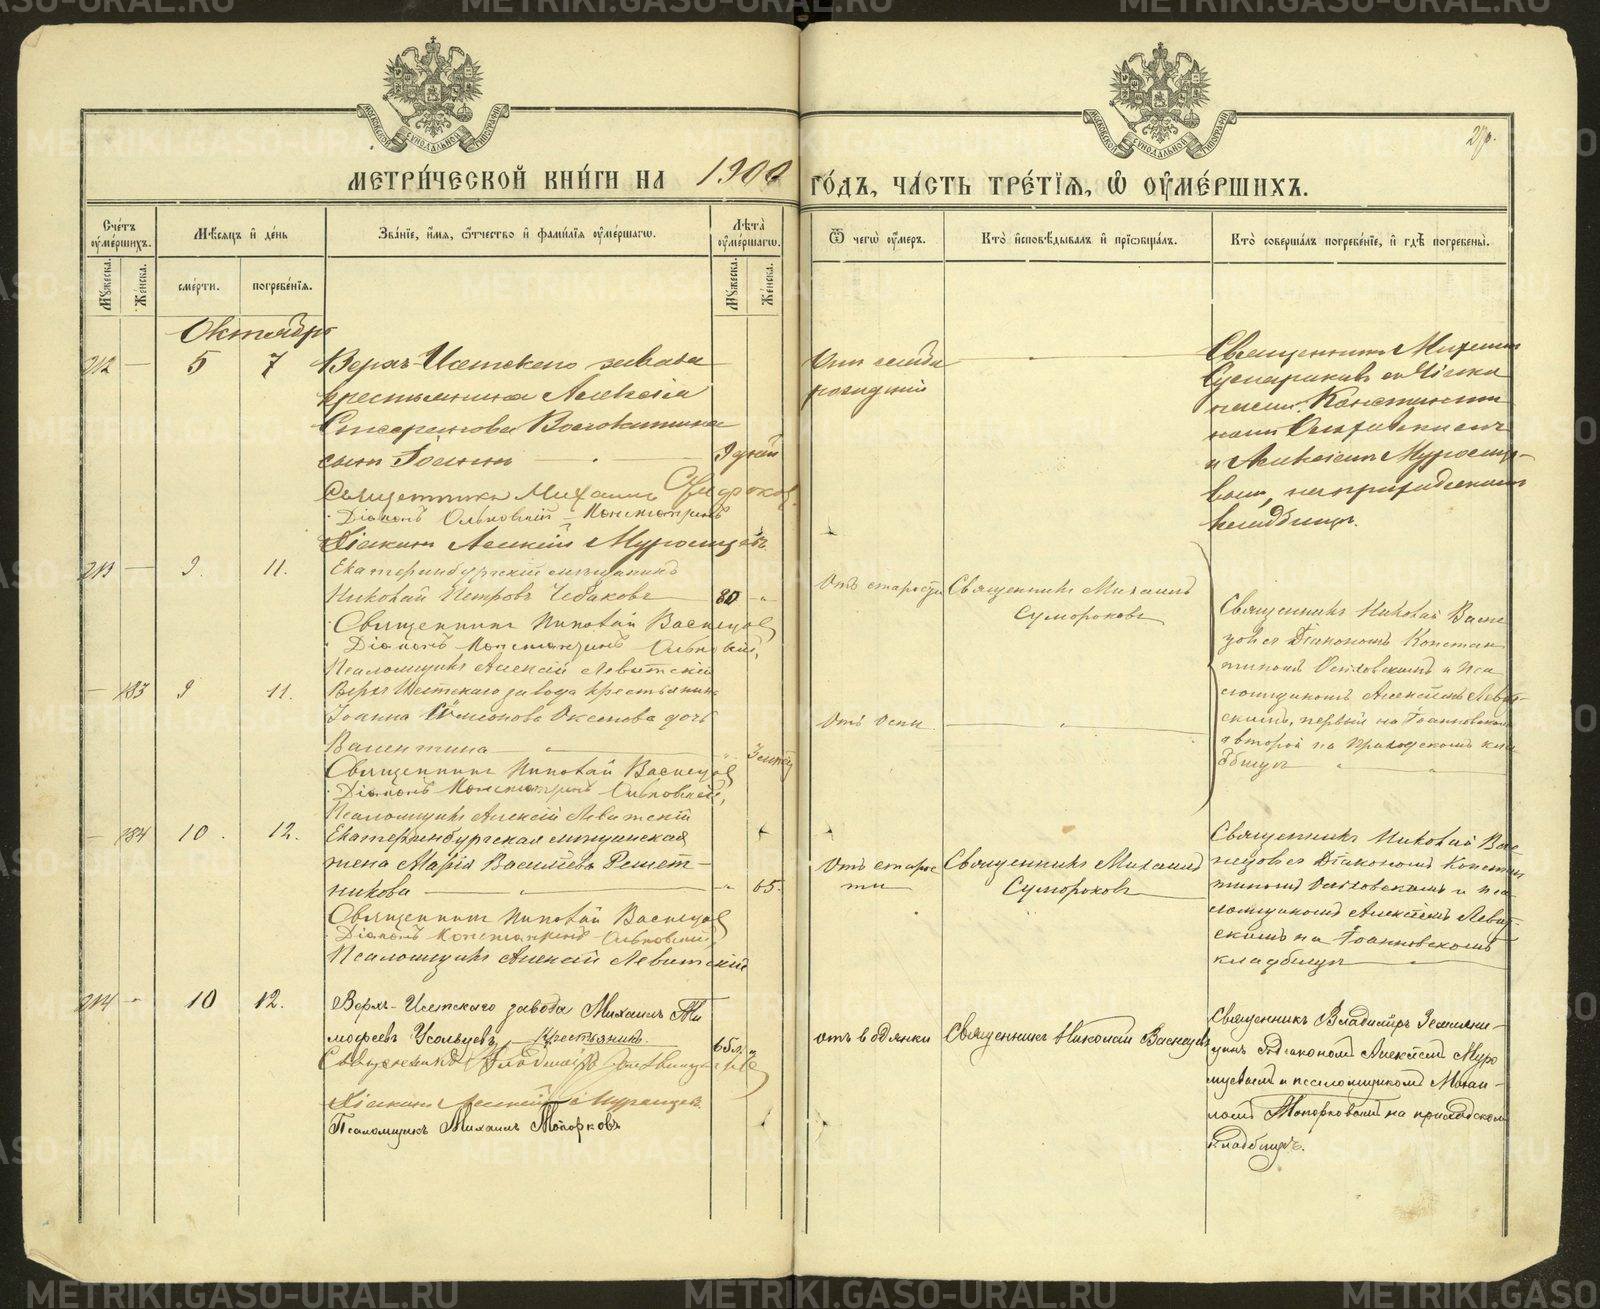 МЕТРИ́ЧЕСКОЙ КНИ́ГИ НА 1900
ГО́ДЪ, ЧА́СТЬ ТРЕ́ТІѦ, Ѽ ОУ҆МЕ́РШИХЪ.
Сче́тъ оу҆ме́ршихъ.
Мꙋ́жеска.
Же́нска.
Мѣ́сяцъ и҆ де́нь
сме́рти.
погребе́нія.
Зва́ніе, и҆́мя, ѻ҆́тчество и҆ фами́лія оу҆ме́ршагѡ.
Лѣ́та оу҆ме́ршагѡ.
Мꙋ́жеска.
Же́нска.
Ѿ чегѡ̀ оу҆́меръ.
Кто̀ и҆сповѣ́дывалъ и҆ пріѡбща́лъ.
Кто̀ соверша́лъ погребе́ніе, и҆ гдѣ̀ погребены̀.
Октябрь
212 — 5 7
Верхъ-Исетскаго завода
крестьянина Алексія
Волокитина
сынъ
9 дней
Священникъ Михаилъ
Діаконъ Константинъ
Діаконъ Алексій Муромцевъ
Священникъ Михаилъ
Діако
номъ Константи
номъ
и Алексіемъ Муром
на приходскомъ
кладбищѣ.
213 — 9. 11.
Екатеринбургскій мѣщанинъ
Николай Петровъ Чебаковъ
80 „
Священникъ Николай Васнецов
Діаконъ Константинъ
Псаломщикъ Алексій Левитскій
Отъ старости
Священникъ Михаилъ
Сумороковъ
Священникъ Николай Васне
цовъ съ Діакономъ Констан
тиномъ и пса
ломщикомъ Алексіемъ Левит
скимъ, первый на Іоанновскомъ
а второй на приходскомъ кла
дбищѣ
— 183 9 11.
Верхъ Исетскаго завода крестьянина
Іоанна Симеонова дочь
Валентина
Священникъ Николай Васнецов
Діаконъ Константинъ
Псаломщикъ Алексій Левитскій
Отъ оспы
— 184 10. 12.
Екатеринбургская мѣщанская
жена Марія Васильева Решет-
никова
„ 65.
Священникъ Николай Васнецов
Діаконъ Константинъ
Псаломщикъ Алексій Левитскій
Отъ старос
ти
Священникъ Михаилъ
Сумороковъ
Священникъ Николай Вас
нецовъ съ Діакономъ Констан
тиномъ и пса
ломщикомъ Алексіемъ Левит
скимъ на Іоанновскомъ
кладбищѣ
214 „ 10 12.
Верхъ-Исетскаго завода Михаилъ Ти
мофеевъ Усольцевъ, крестьянинъ.
65 л.
Священникъ Владиміръ Земляницынъ
Діаконъ Алексій Муромцевъ
Псаломщикъ Михаилъ Топорковъ
отъ водянки
Священникъ Николай Васнецовъ
Священникъ Владиміръ Земляни-
цынъ съ діакономъ Алексіемъ Муро
мцевымъ и псаломщикомъ Михаи-
ломъ Топорковымъ на приходском
кладбищѣ.